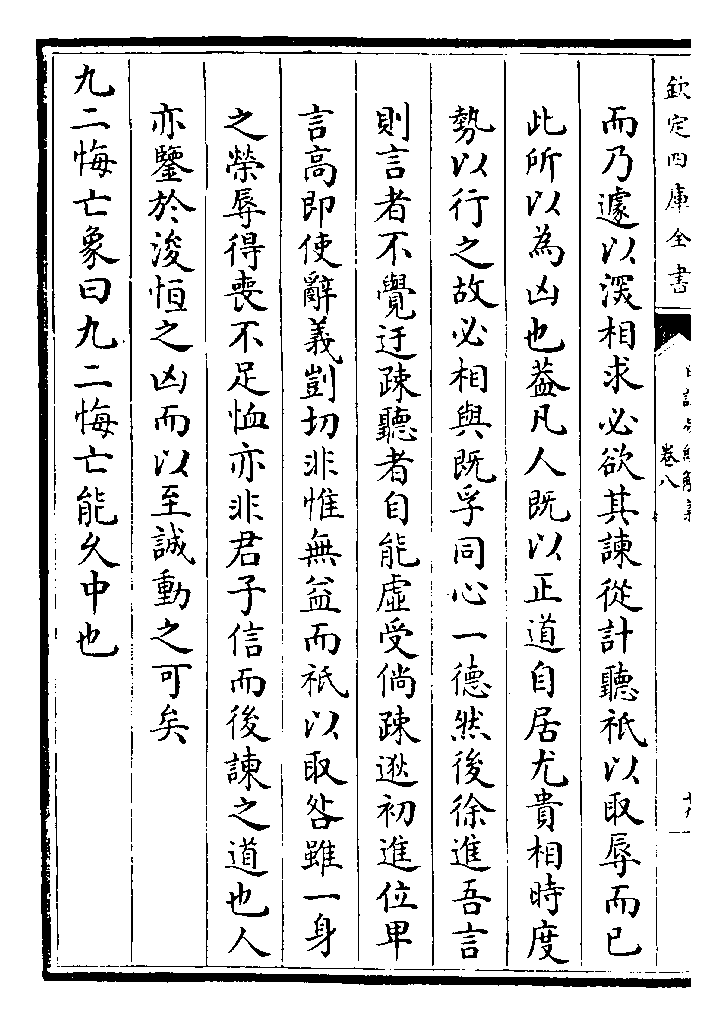 欽定四庫全書
卷八
而乃遽以深相求必欲其諫從計聽祇以取辱而已
此所以為凶也葢凡人既以正道自居尤貴相時度
勢以行之故必相與既孚同心一德然後徐進吾言
則言者不覺迂疎聽者自能虛受倘疎逖初進位卑
言高即使辭義剴切非惟無益而祇以取咎雖一身
之榮辱得喪不足恤亦非君子信而後諫之道也人
亦鑒於浚恒之凶而以至誠動之可矣
九二悔亡象曰九二悔亡能久中也